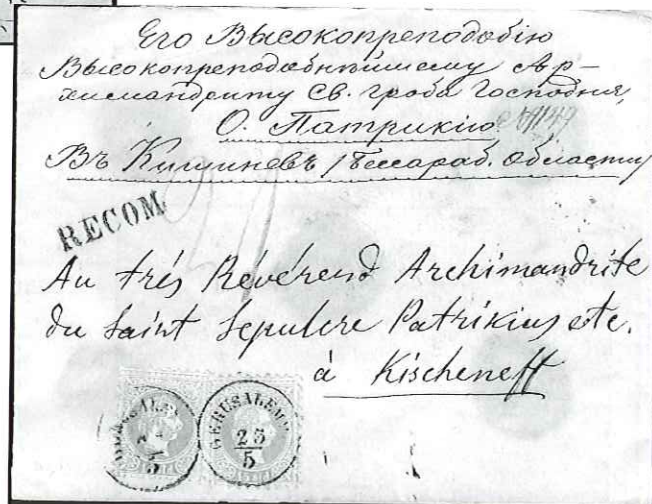 Его Высокопреподобію
Высокопреподобнѣйшему Ар-
химандриту Св. гроба Господня,
О. Патрикію
Въ Кишиневъ /Бессараб. области/
RECOM
Au trés Révérend Archimandrite
du Saint Sepulcre Patrikius etc.
à Kischeneff
GERUSALEMME
25
5